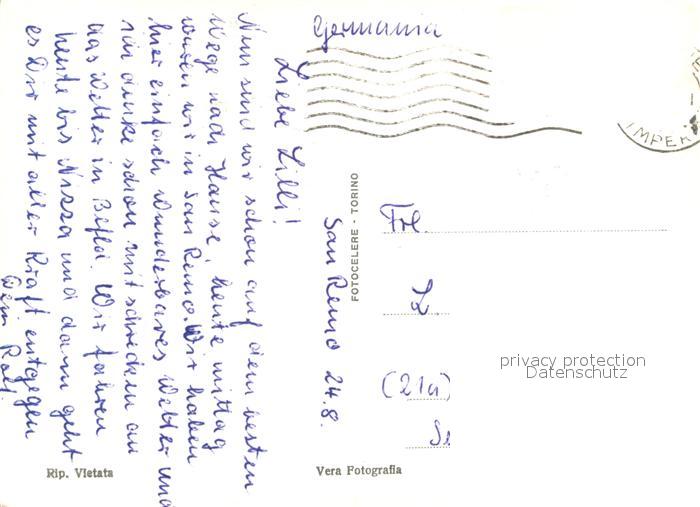 Germania
San Remo 24.8.
Liebe Lilli!
Nun sind wir schon auf dem besten
Wege nach Hause, heute mittag
waren wir in San Remo. Wir haben
hier einfach wunderbares Wetter und
ich denke schon mit schrecken an
das Wetter in Bfld. Wir fahren
heute bis Nizza und dann geht
es Dir mit aller Kraft entgegen
Dein Rolf.
Frl.
L
(21a)
IMPER
FOTOCELERE - TORINO
privacy protection
Datenschutz
Rip. Vietata
Vera Fotografia